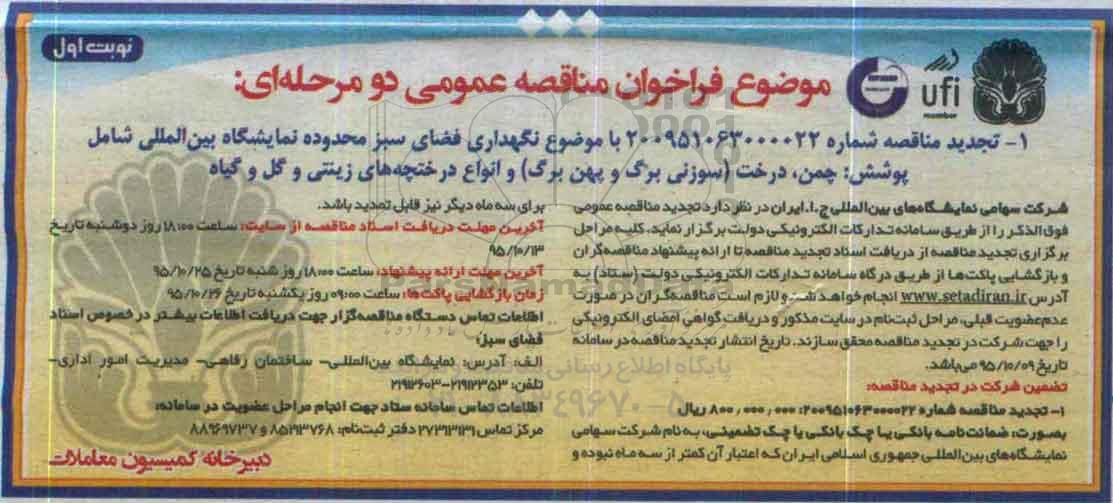 نوبت اول
ufi
member
موضوع فراخوان مناقصه عمومی دو مرحله‌ای:
۱- تجدید مناقصه شماره ۲۰۰۹۵۱۰۶۳۰۰۰۰۲۲ با موضوع نگهداری فضای سبز محدوده نمایشگاه بین‌المللی شامل
پوشش: چمن، درخت (سوزنی برگ و پهن برگ) و انواع درختچه‌های زینتی و گل و گیاه
شرکت سهامی نمایشگاه‌های بین‌المللی ج.ا.ایران در نظر دارد تجدید مناقصه عمومی
فوق‌الذکر را از طریق سامانه تدارکات الکترونیکی دولت برگزار نماید. کلیه مراحل
برگزاری تجدید مناقصه از دریافت اسناد تجدید مناقصه تا ارائه پیشنهاد مناقصه‌گران
و بازگشایی پاکت‌ها از طریق درگاه سامانه تدارکات الکترونیکی دولت (ستاد) به
آدرس www.setadiran.ir انجام خواهد شد و لازم است مناقصه‌گران در صورت
عدم عضویت قبلی، مراحل ثبت‌نام در سایت مذکور و دریافت گواهی امضای الکترونیکی
را جهت شرکت در تجدید مناقصه محقق سازند. تاریخ انتشار تجدید مناقصه در سامانه
تاریخ ۹۵/۱۰/۰۹ می‌باشد.
تضمین شرکت در تجدید مناقصه:
۱- تجدید مناقصه شماره ۲۰۰۹۵۱۰۶۳۰۰۰۰۲۲: ۸۰۰,۰۰۰,۰۰۰ ریال
بصورت: ضمانت‌نامه بانکی یا چک بانکی یا چک تضمینی، به نام شرکت سهامی
نمایشگاه‌های بین‌المللی جمهوری اسلامی ایران که اعتبار آن کمتر از سه ماه نبوده و
برای سه ماه دیگر نیز قابل تمدید باشد.
آخرین مهلت دریافت اسناد مناقصه از سایت: ساعت ۱۸:۰۰ روز دوشنبه تاریخ
۹۵/۱۰/۱۳
آخرین مهلت ارائه پیشنهاد: ساعت ۱۸:۰۰ روز شنبه تاریخ ۹۵/۱۰/۲۵
زمان بازگشایی پاکت‌ها: ساعت ۰۹:۰۰ روز یکشنبه تاریخ ۹۵/۱۰/۲۶
اطلاعات تماس دستگاه مناقصه‌گزار جهت دریافت اطلاعات بیشتر در خصوص اسناد
فضای سبز:
الف: آدرس: نمایشگاه بین‌المللی- ساختمان رفاهی- مدیریت امور اداری-
تلفن: ۲۱۹۱۲۳۵۳-۲۱۹۱۲۶۰۳
اطلاعات تماس سامانه ستاد جهت انجام مراحل عضویت در سامانه:
مرکز تماس ۲۷۳۱۳۱۳۱ دفتر ثبت‌نام: ۸۵۱۹۳۷۶۸ و ۸۸۹۶۹۷۳۷
دبیرخانه کمیسیون معاملات
ParsNamadData
پایگاه اطلاع رسانی
۰۲۱-۸۸۳۴۹۶۷۰-۵